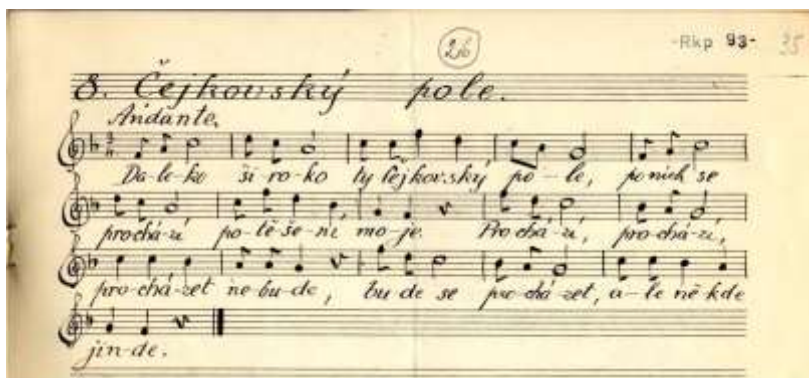 26
-Rkp 93- 35
8. Čejkovský pole.
Andante.
Da-le-ko ši-ro-ko ty čejkovský po-le, po nich se
prochá-zí po-tě-še-ní mo-je. Prochá-zí, pro-chá-zí,
pro-chá-zet ne bu-de, bu de se pro-chá-zet, a-le ně kde
jin-de.